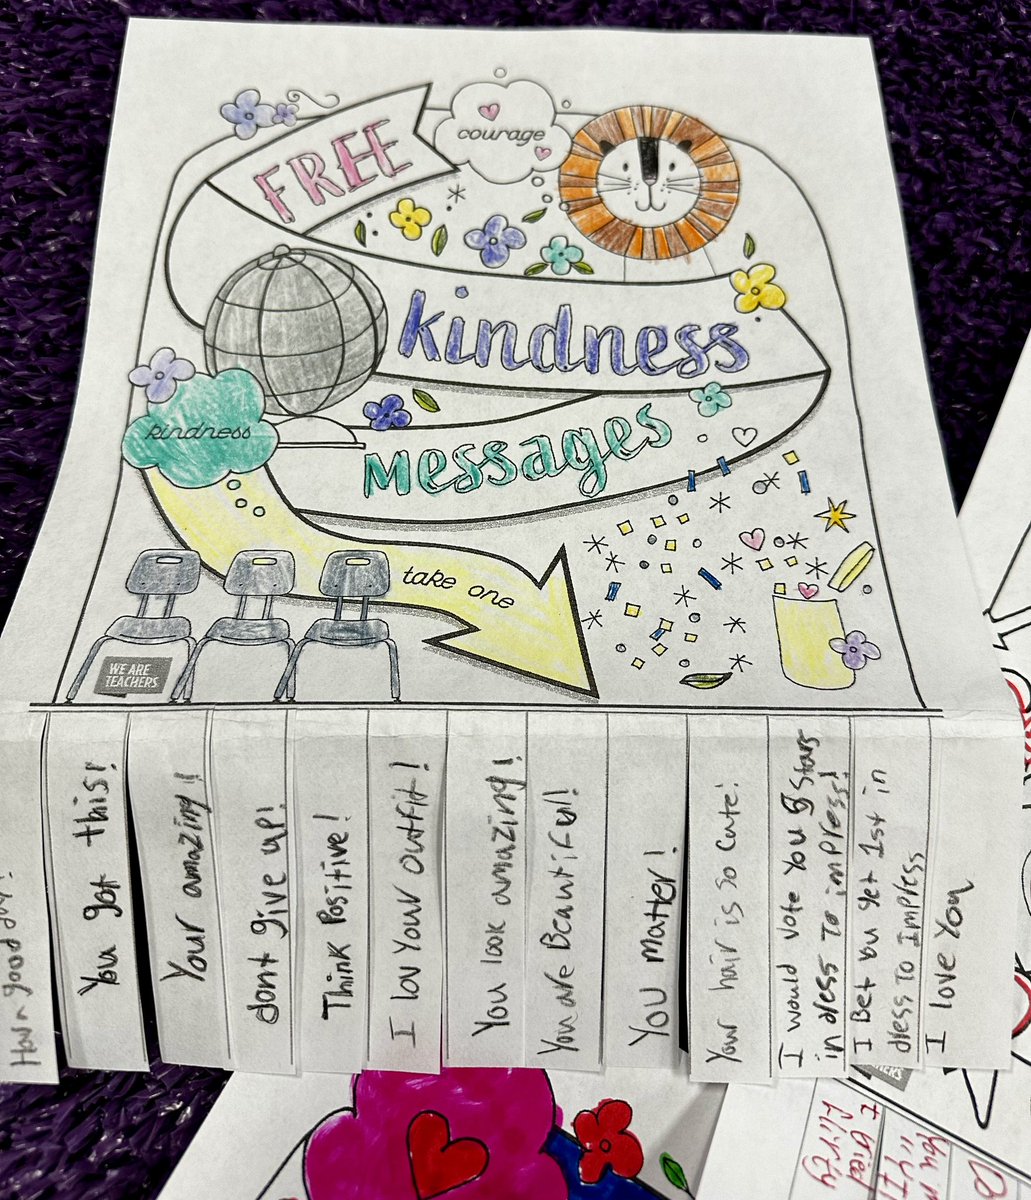 FREE
courage
kindness
kindness
Messages
take one
WE ARE
TEACHERS
Hav a good day!
You got this!
Your amazing!!
dont give up!
Think Positive!
I lov Your outfit!
You look amazing!
You are Beautiful!
You matter!
Your hair is so cute!
I would vote you 5 Stars
in dress To impress!
I Bet you get 1st in
dress to Impress
I love You